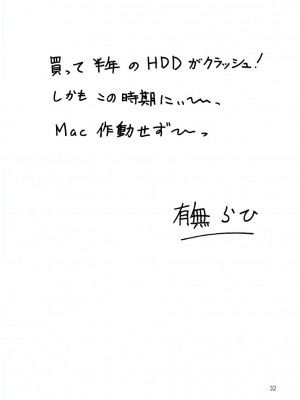 買って半年のHDDがクラッシュ!
しかもこの時期にぃ〜〜、
Mac 作動せず〜っ
有無らひ
32